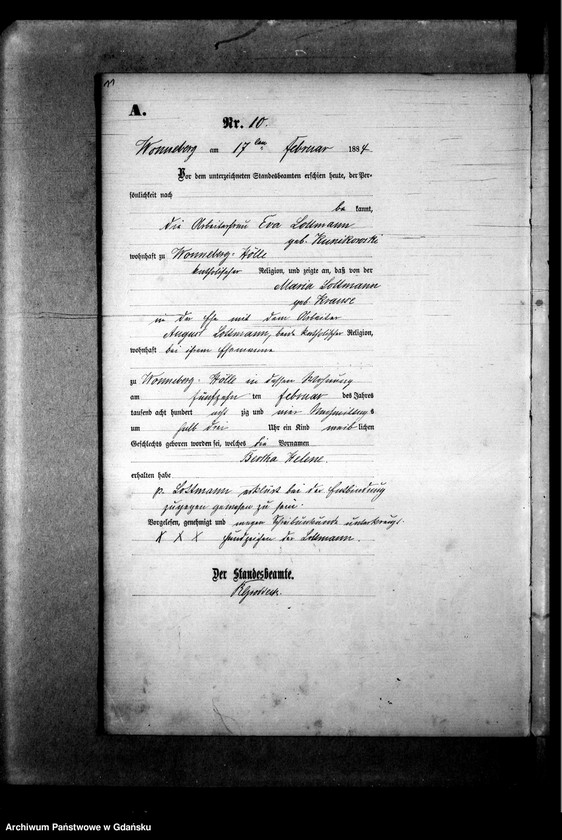 A.
Nr. 10.
Wonneberg am 17ten Februar 1884.
Vor dem unterzeichneten Standesbeamten erschien heute, der Per-
sönlichkeit nach
be kannt,
die Arbeiterfrau Eva Lottmann
geb. Kunikowski
wohnhaft zu Wonneberg-Hölle
katholischer Religion, und zeigte an, daß von der
Maria Lottmann
geb. Krause
in der Ehe mit dem Arbeiter
August Lottmann, beide katholischer Religion,
wohnhaft bei ihrem Ehemanne
zu Wonneberg-Hölle in dessen Wohnung
am fünfzehn ten Februar des Jahres
tausend acht hundert acht zig und vier Nachmittags
um halb drei Uhr ein Kind weib lichen
Geschlechts geboren worden sei, welches die Vornamen
Bertha Helene.
erhalten habe
p. Lottmann erklärt bei der Entbindung
zugegen gewesen zu sein.
Vorgelesen, genehmigt und wegen Schreibunkunde unterkreuzt.
X X X Handzeichen der Lottmann.
Der Standesbeamte.
Archiwum Państwowe w Gdańsku